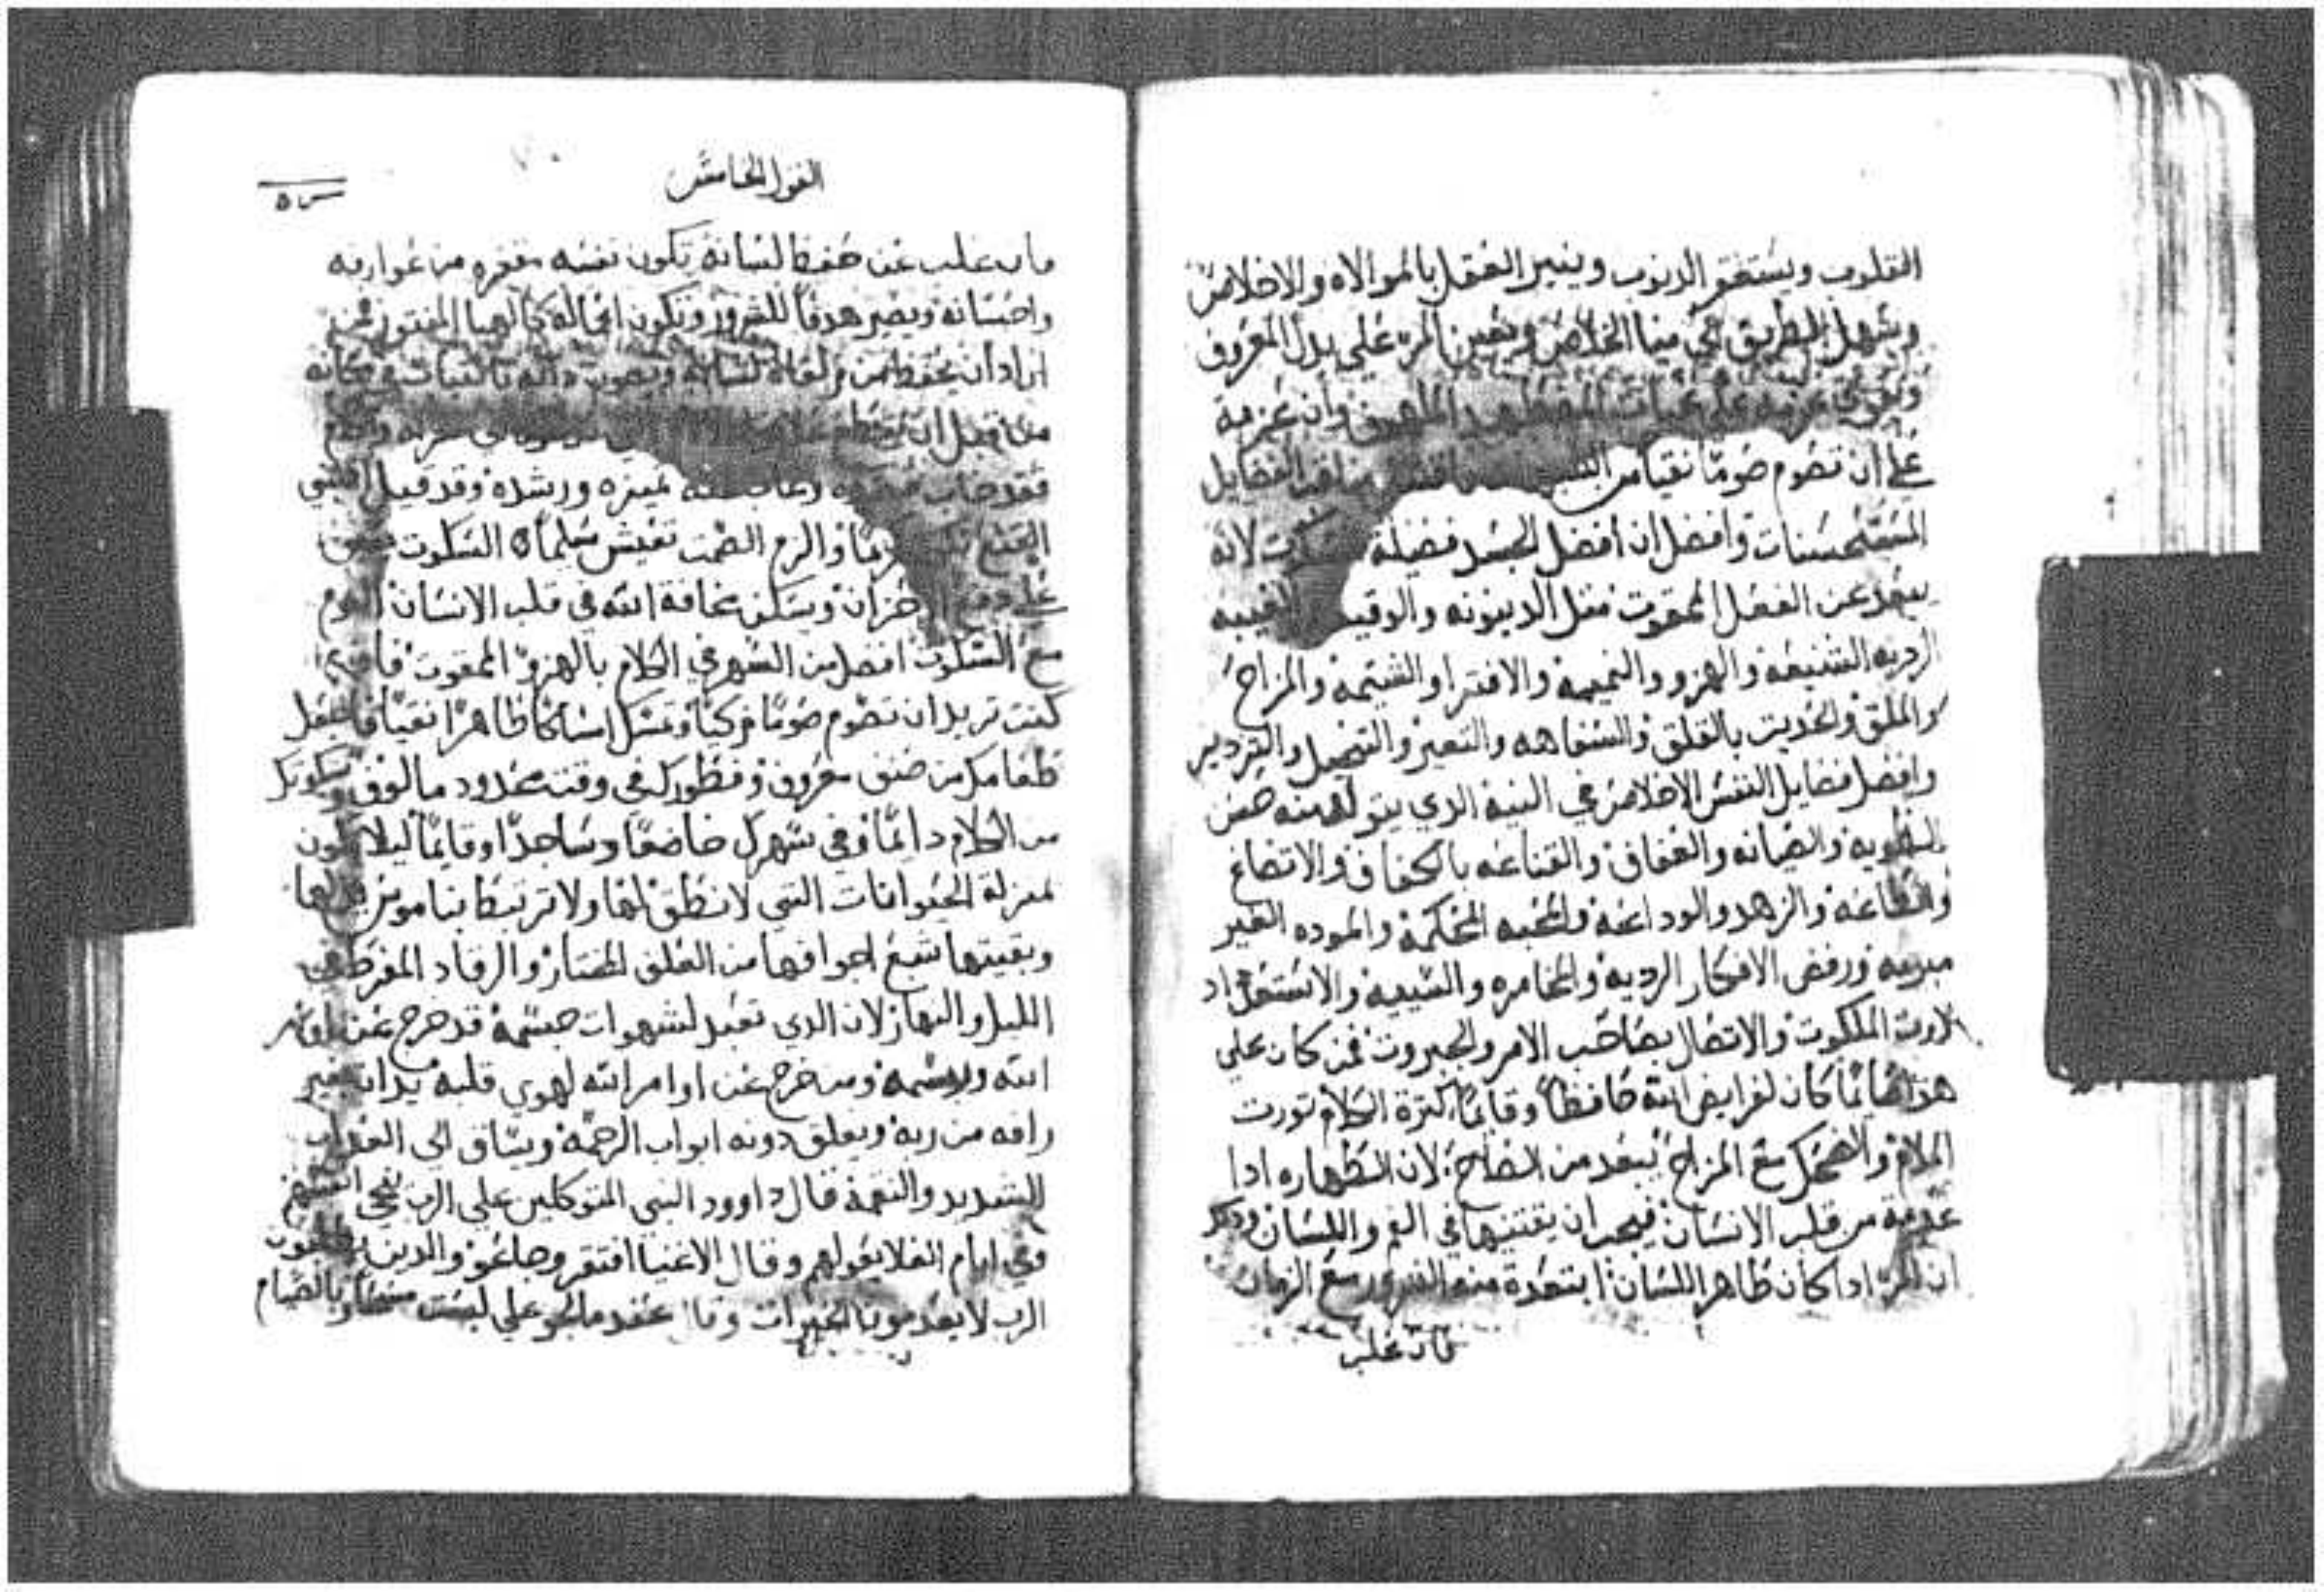 القلوب ويستغفر الدنوب وينير العقل بالموالاه والاخلاص
ويسهل الطريق الي مينا الخلاص ويعين المره علي بدل المعروف
ويقوي عزمه علي والملهوف وان عزمة
علي ان تصوم صومًا نقيًا من الفضايل
المستحسنات وافضل ان أفضل الجسد فضيلة السكوت لانه
يبعد عن الفعل الممقوت مثل الدينونه والوقيعه الغيبه
الرديه الشنيعه والهزو والنميمه والافترا والشتيمه والمزاح
والملق والحديت بالقلق والسفاهه والتعير
وافضل فضايل النفس الاخلاص في النية الدي يتولد منه حسن
الطويه والصيانه والعفاف والقناعه بالكفاف والاتضاع
والطاعه والزهد والوداعه والمحبه المحكمة والموده الغير
مبرمه ورفض الافكار الرديه والاستعداد
لاورت الملكوت والاتصال بصاحب الامر والجبروت فمن كان علي
هذا صايمًا كان لفرايض الله حافظًا وقايمًا كترة الكلام تورت
الملام والضحك مع المزاح يبعد من الصلاح لان الطهاره ادا
عدمة من قلب الانسان فيجب ان يقتنيها في الفم واللسان ودكر
ان المرء ادا كان طاهر اللسان ابتعدة منه الشرور مع الزمان
فان غلب
القول الخامس
فان غلب عن حفظ لسانه تكون نفسه مقفره من عوارفه
واحسانه ويصير هدفًا للشرور وتكون افعاله كالهبا المنتور فمن
اراد ان يحفظ من زلقاة لسانه ويصون داته بالتبات في مكانه
من قبل ان
فقد خاب تميزه ورشده وقد قيل
والزم الصمت تعيش سلمًا السكوت
علي الاحزان ويسكن مخافة الله في قلب الانسان النوم
مع السكوت افضل من السهر في الكلام بالهزو الممقوت فان
كنت تريد ان تصوم صومًا زكيًا وتمسك امساكًا طاهرًا نقيًا فاجعل
طعامك من صنف معروف وفطورك في وقت محدود مالوف وسكوتك
من الكلام دايمًا وفي سهرك خاضعًا وساجدًا وقايمًا ليلا تكون
بمنزلة الحيوانات التي لا نطق لها ولا ترتبط بناموس
وبغيتها شبع اجوافها من العلف والرقاد المفرط في
الليل والنهار لان الدي تعبد لشهوات جسمه قد خرج عن اوامر
الله ورسمه ومن خرج عن اوامر الله لهوي قلبه يدان بغير
رافه من ربه ويغلق دونه ابواب الرحمة ويساق الي العداب
الشديد والنقمة قال داوود النبي المتوكلين علي الرب
وفي ايام الغلا يعولهم وقال الاغنيا افتقرو وجاعو والدين يطلبون
الرب لا يعدمو الخيرات وقال عندما لجو علي لبست مسحًا وبالصيام